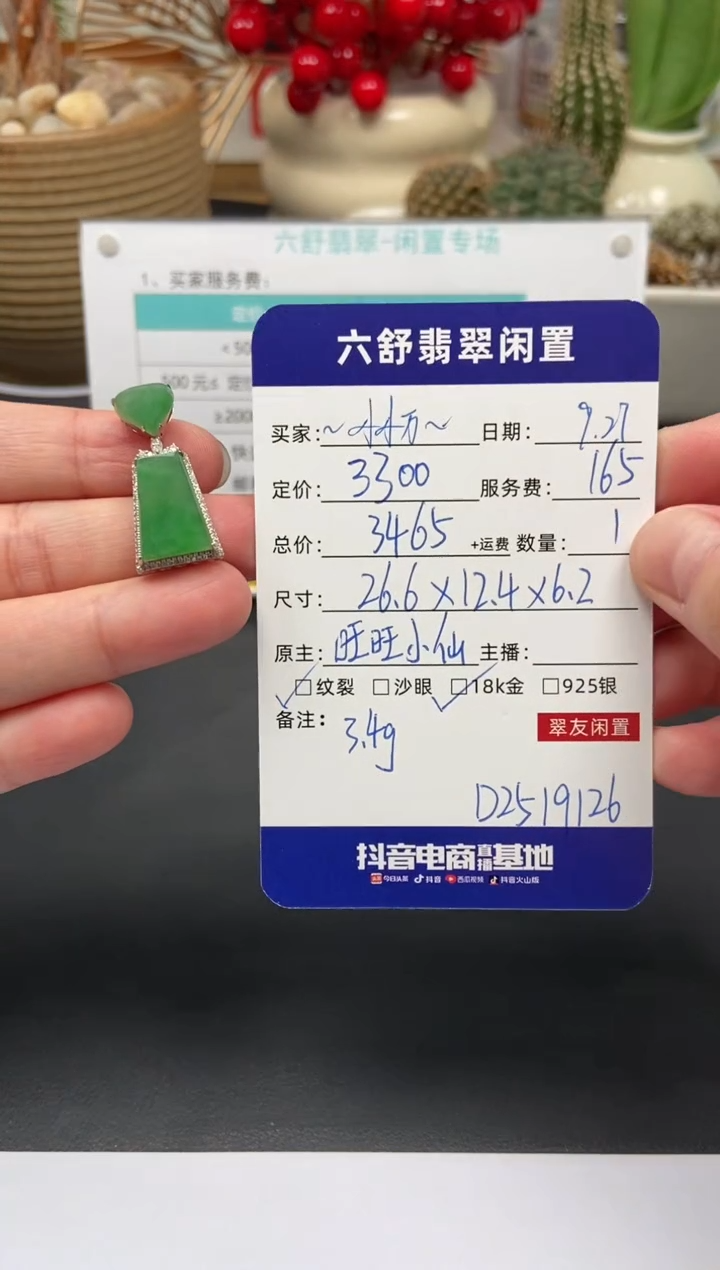 六舒翡翠-闲置专场
1、买家服务费：
六舒翡翠闲置
买家：~林万~ 日期：9.27
定价：3300 服务费：165
总价：3465 +运费 数量：1
尺寸：26.6×12.4×6.2
原主：旺旺小仙 主播：
□纹裂 □沙眼 □18k金 □925银
备注：3.4g
翠友闲置
D2519126
抖音电商直播基地
今日头条 抖音 西瓜视频 抖音火山版